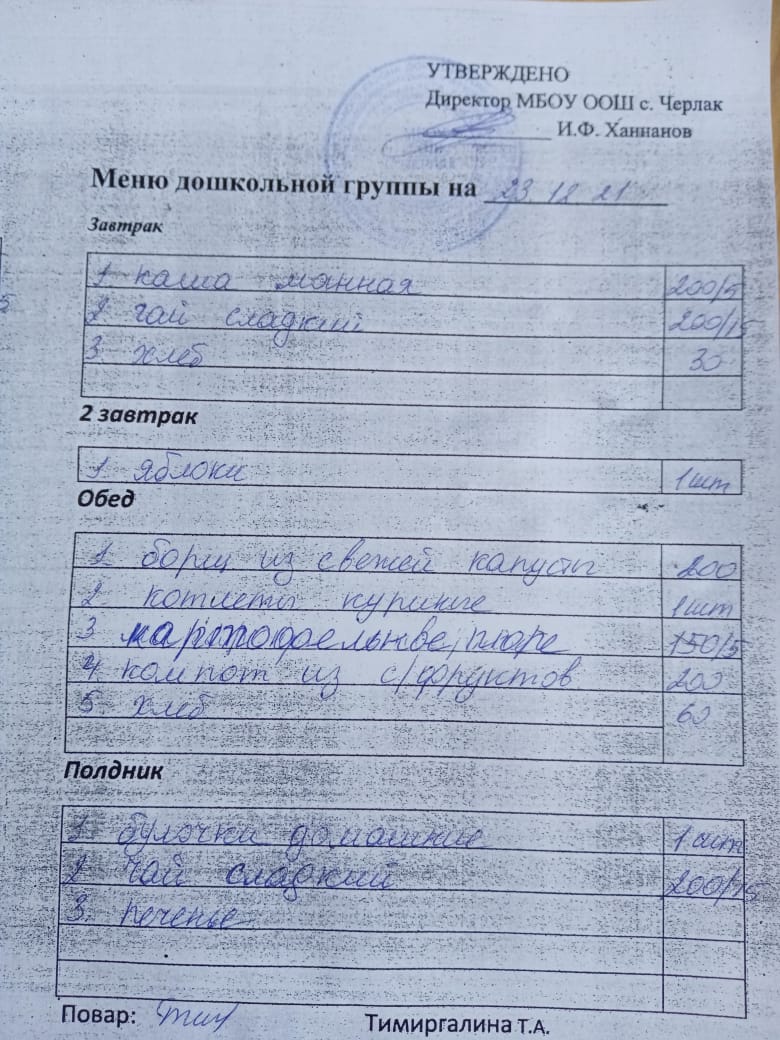 УТВЕРЖДЕНО
Директор МБОУ ООШ с. Черлак
И.Ф. Ханнанов
Меню дошкольной группы на 23 12 21
Завтрак
1 каша манная 200/5
2 чай сладкий 200/15
3. хлеб 30
2 завтрак
1 яблоки 1шт
Обед
1 борщ из свежей капусты 200
2 котлеты куриные 1шт
3 картофельное пюре 150/5
4. компот из с/фруктов 200
5. хлеб 60
Полдник
1 булочки домашние 1 шт
2 чай сладкий 200/15
3. печенье
Повар: Тимиргалина Т.А.